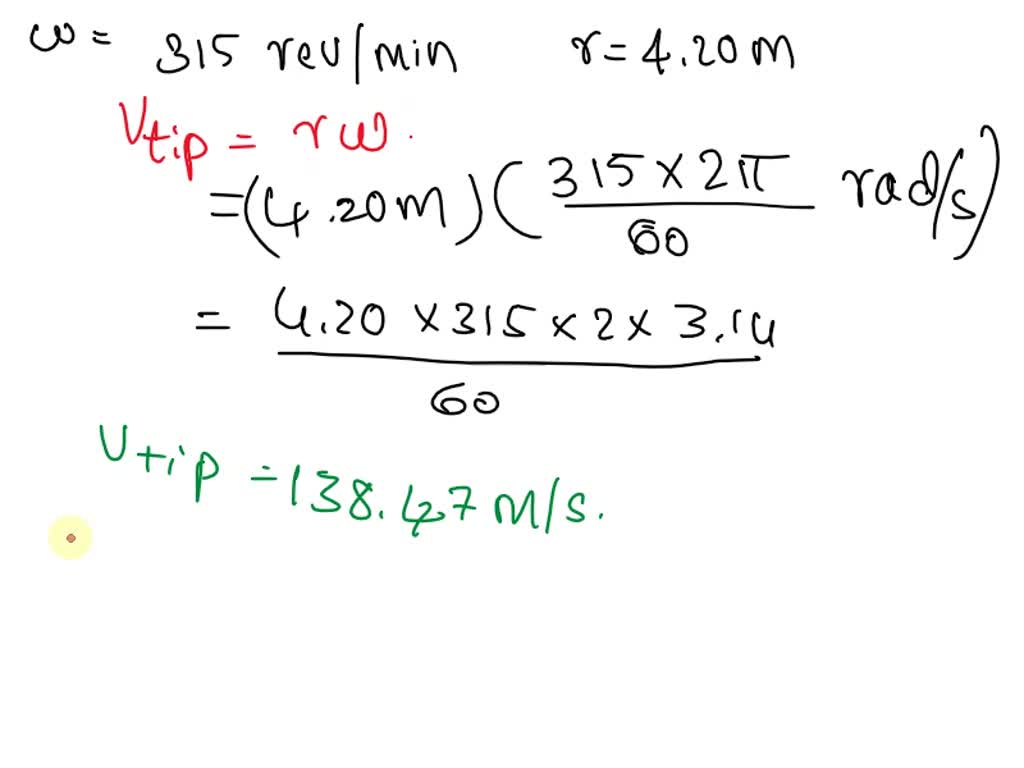 ω = 315 rev/min r = 4.20 m
Vtip = rω.
= (4.20 m) ( 315 × 2π / 60 rad/s )
= 4.20 × 315 × 2 × 3.14
60
Vtip = 138.47 m/s.